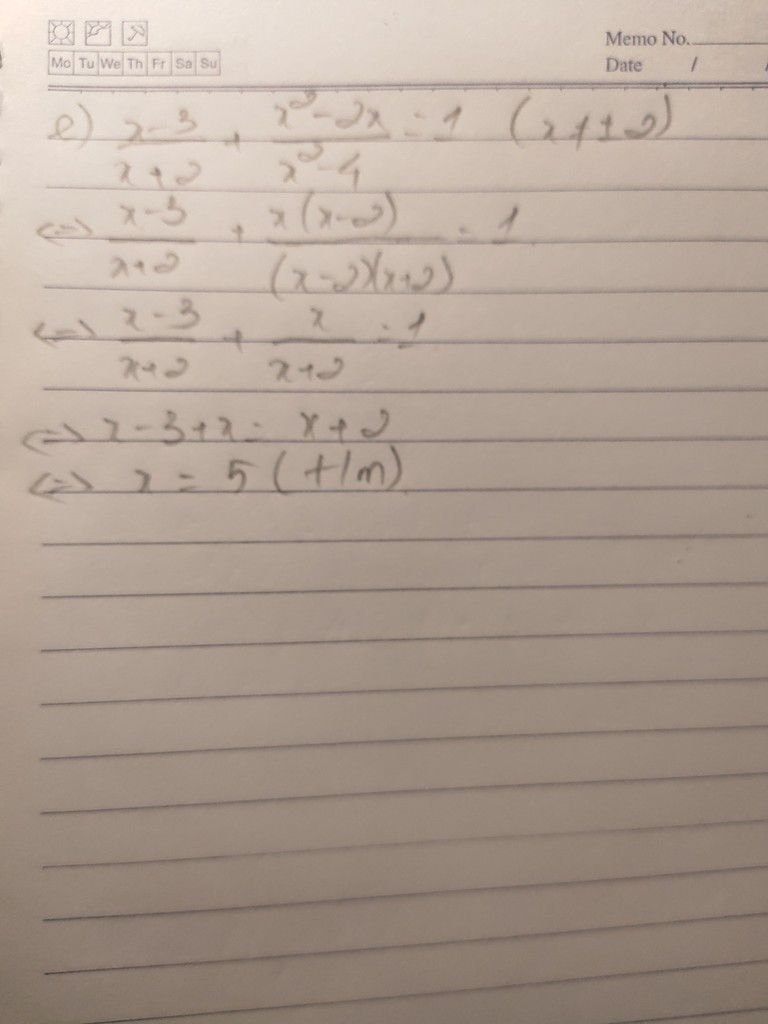 Memo No.
Mo Tu We Th Fr Sa Su
Date / /
e) x-3/x+2 + x²-2x/x²-4 = 1 (x≠±2)
<=> x-3/x+2 + x(x-2)/(x-2)(x+2) = 1
<=> x-3/x+2 + x/x+2 = 1
<=> x-3+x = x+2
<=> x = 5 (t/m)